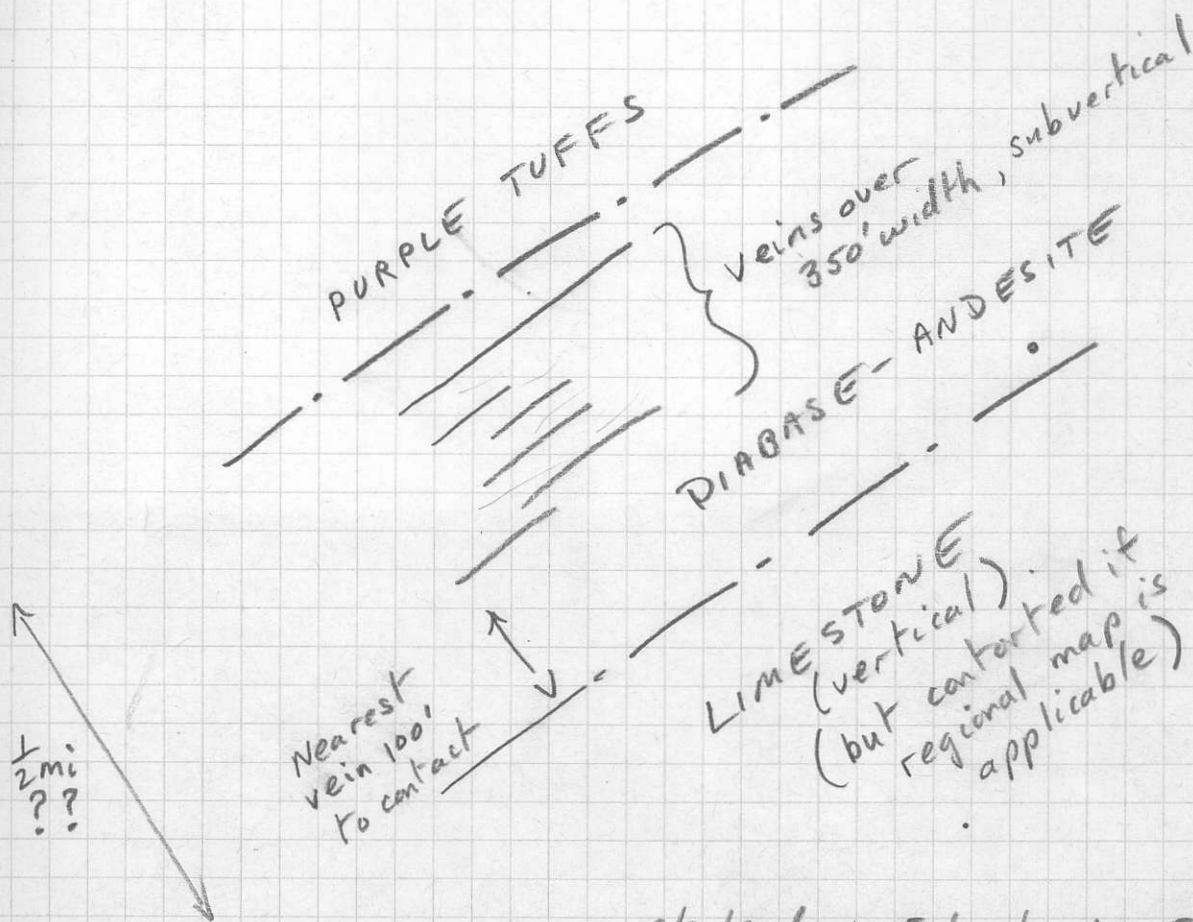 PURPLE TUFFS
veins over
350' width, subvertical
DIABASE-ANDESITE
LIMESTONE
(vertical)
(but contorted if
regional map is
applicable)
Nearest
vein 100'
to contact
1/2 mi
??